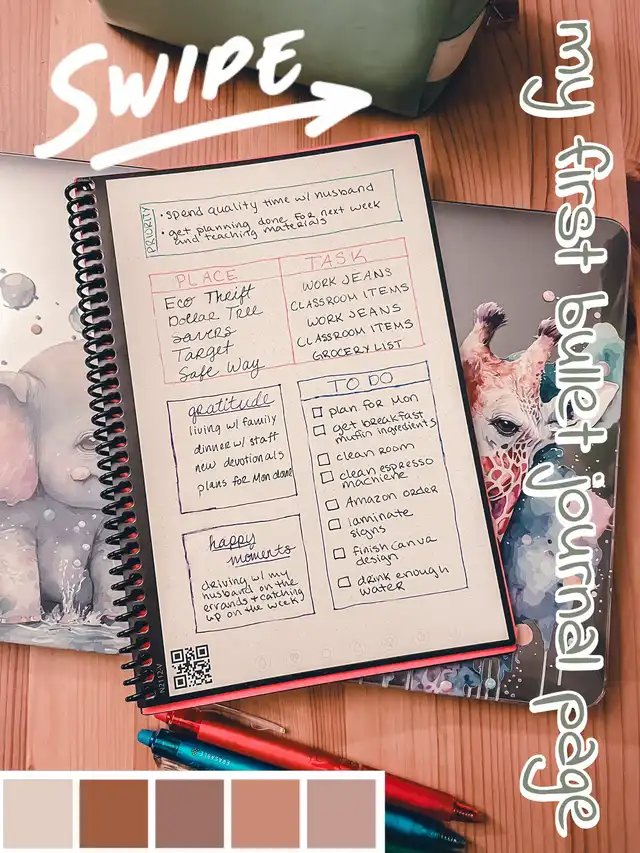 SWIPE
my first bullet journal page
PRIORITY
• spend quality time w/ husband
• get planning done for next week
and teaching materials
PLACE
Eco Thrift
Dollar Tree
savers
Target
Safe Way
TASK
WORK JEANS
CLASSROOM ITEMS
WORK JEANS
CLASSROOM ITEMS
GROCERY LIST
gratitude
living w/ family
dinner w/ staff
new devotionals
plans for Mon done
TO DO
plan for Mon
get breakfast
muffin ingredients
clean room
clean espresso
machiene
Amazon order
laminate
signs
finish canva
design
drink enough
water
happy
moments
driving w/ my
husband on the
errands + catching
up on the week
N2112-V